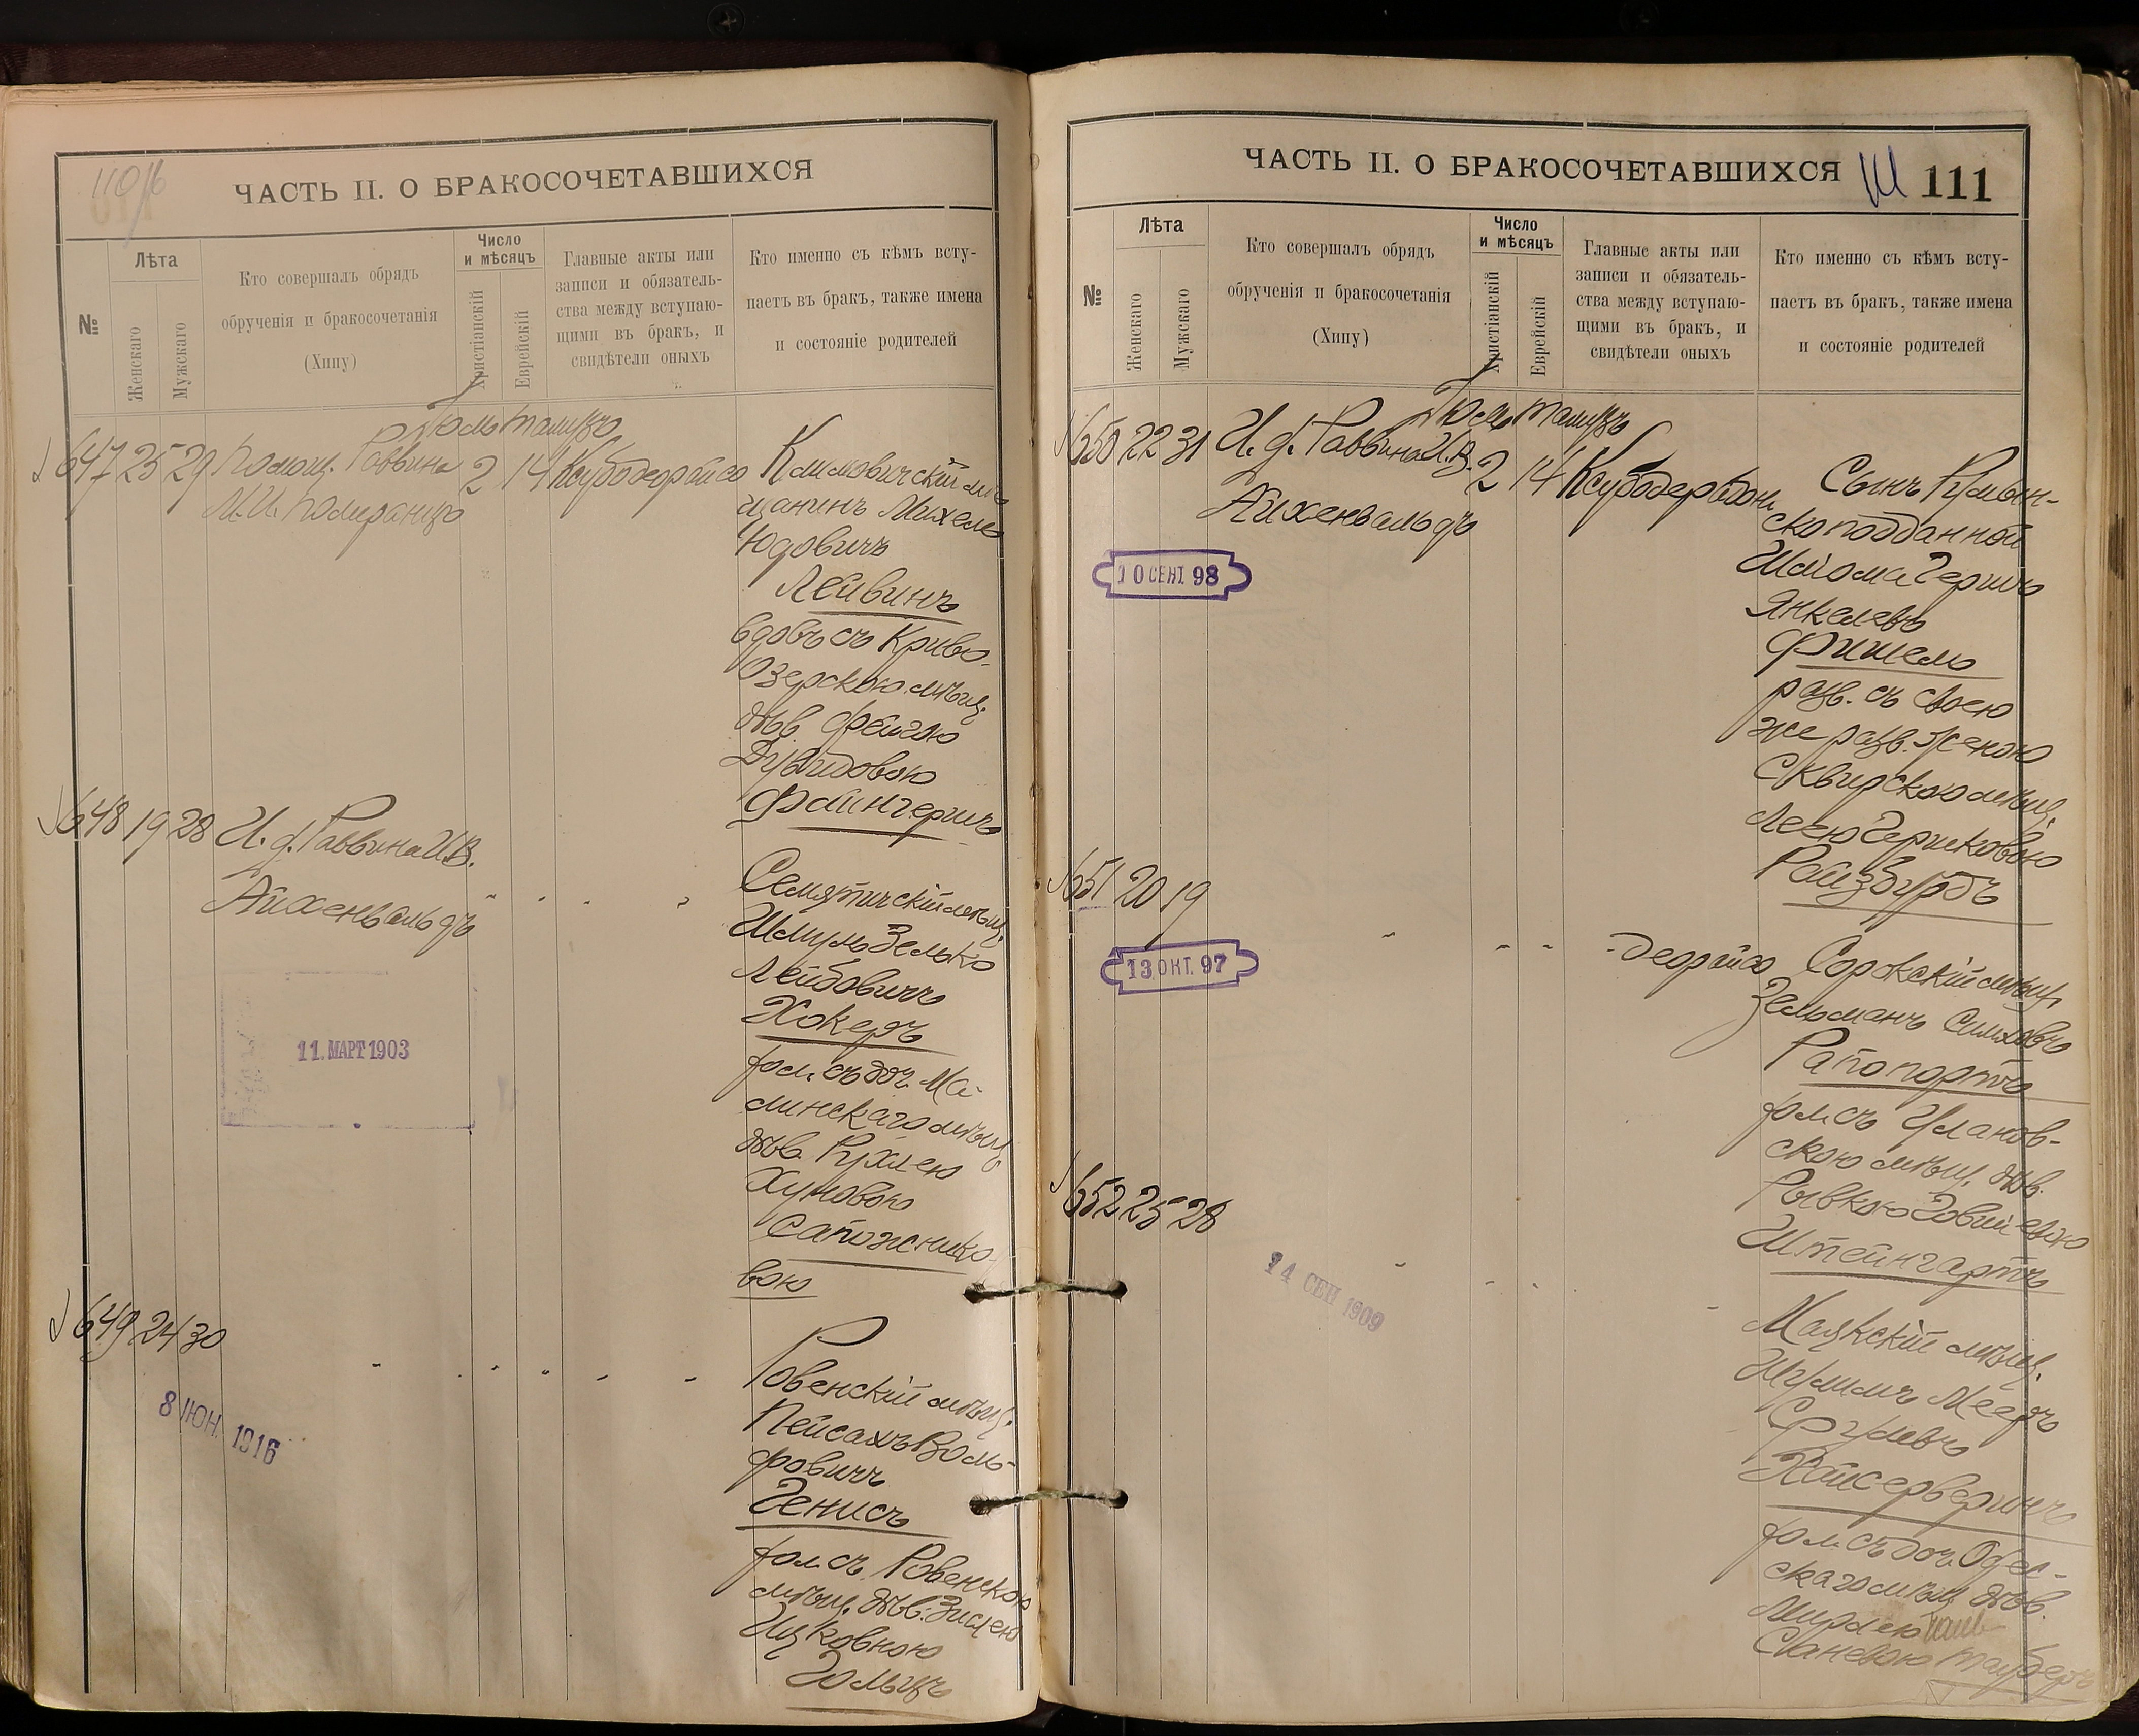 110/б
ЧАСТЬ II. О БРАКОСОЧЕТАВШИХСЯ
№
Лѣта
Женскаго
Мужскаго
Кто совершалъ обрядъ
обрученія и бракосочетанія
(Хипу)
Число
и мѣсяцъ
Христіанскій
Еврейскій
Главные акты или
записи и обязатель-
ства между вступаю-
щими въ бракъ, и
свидѣтели оныхъ
Кто именно съ кѣмъ всту-
паетъ въ бракъ, также имена
и состояніе родителей
Іюль Тамузъ
647 25 29 Помощ. Раввина 2 14 Ксубодеорайсо
М. И. Померанцъ
Климовичскій мѣ-
щанинъ Михель
Юдовичъ
Лейвинъ
вдовъ съ Криво-
Озерскою мѣщ.
дѣв. Фейгою
Дувидовою
Файнгершъ
648 19 28 И. д. Раввина И. В.
Айхенвальдъ
11. МАРТ 1903
Семятичскій мѣщ.
Шмуль Зелько
Лейбовичъ
Хокеръ
хол. съ доч.
линскаго мѣщ.
дѣв. Рухлею
Хуновою
Сапожнико-
вою
649 24 30
8 ИЮН. 1916
Ровенскій мѣщ.
Пейсахъ Воль-
фовичъ
Генисъ
хол. съ Ровенскою
мѣщ. дѣв. Зислею
Ицковною
Гольцъ
ЧАСТЬ II. О БРАКОСОЧЕТАВШИХСЯ
111
№
Лѣта
Женскаго
Мужскаго
Кто совершалъ обрядъ
обрученія и бракосочетанія
(Хипу)
Число
и мѣсяцъ
Христіанскій
Еврейскій
Главные акты или
записи и обязатель-
ства между вступаю-
щими въ бракъ, и
свидѣтели оныхъ
Кто именно съ кѣмъ всту-
паетъ въ бракъ, также имена
и состояніе родителей
Іюль Тамузъ
650 22 31 И. д. Раввина И. В. 2 14
Айхенвальдъ
10 СЕНТ. 98
Сынъ Румын-
скоподданной
Шлома Гершъ
Янкелевъ
Фишель
разв. съ своею
же разв. женою
Сквирскою мѣщ.
Леею Гершковою
Райзбурдъ
651 20 19 деорайсо
13. ОКТ. 97
Сорокскій мѣщ.
Зельманъ Симховъ
Рапопортъ
хол. съ Уланов-
скою мѣщ. дѣв.
Рывкою Говшеевою
Штейнгартъ
652 25 28
14 СЕП 1909
Маякскій мѣщ.
Шулимъ Мееръ
Срулевъ
Хайсерверинъ
хол. съ доч. Одес-
скаго мѣщ. дѣв.
Таубергъ